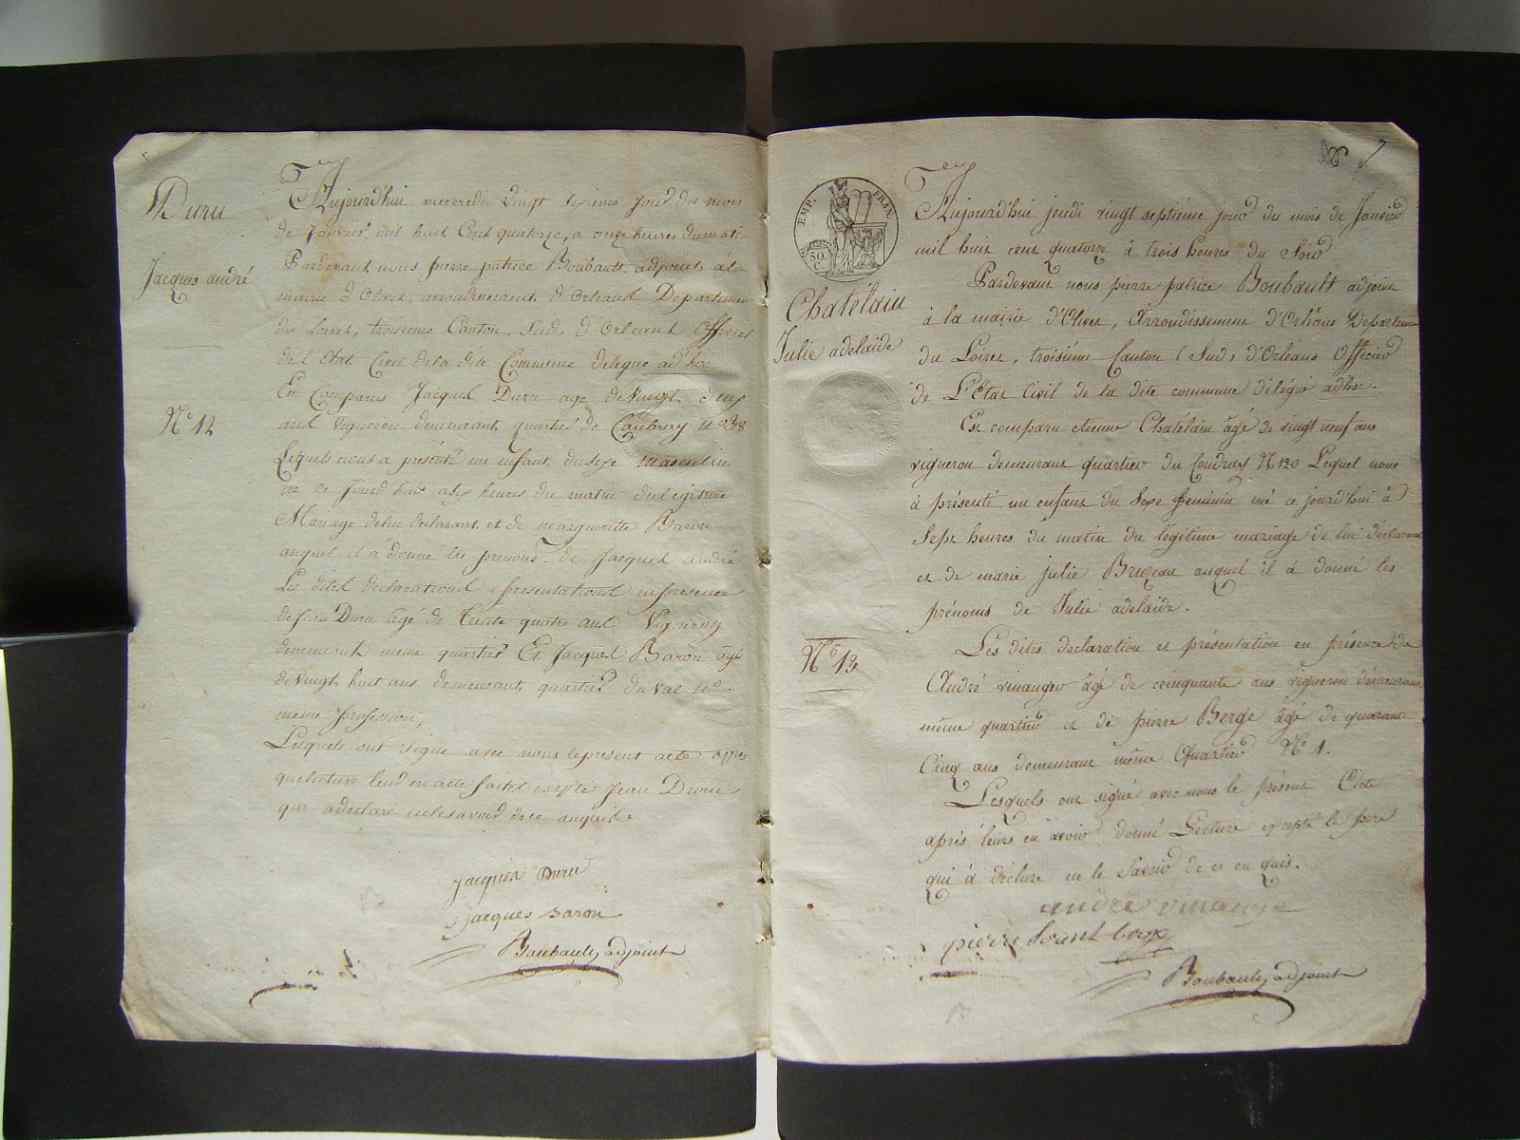 Duru
Jacques andré
N° 12
Aujourd'hui mercredi vingt sixieme jour du mois
de Janvier mil huit Cent quatorze, a onze heures du matin
Pardevant nous pierre patrice Boubault adjoint à la
mairie d'Olivet, arrondissement d'Orleans Departement
du Loiret, troisieme Canton, Sud, d'Orleans Officier
de l'Etat Civil de la dite Commune delegué ad'hoc
Est Comparu Jacques Duru agé de Vingt
ans Vigneron demeurant quartier de Caubray n° 38
Lequel nous a presenté un enfant du Sexe masculin
né ce jourd'hui a six heures du matin du legitime
Mariage de lui declarant et de marguerite Baron
auquel il a donné les prenoms de Jacques André
Les dites declarations et presentations en presence
de Jean Duru agé de Trente quatre ans Vigneron
demeurant meme quartier Et Jacques Baron agé
de Vingt huit ans demeurant quartier du Val
meme profession,
Lesquels ont signé avec nous le present acte apres
que lecture leur en a ete faite excepte Jean Duru
qui a declaré ne le savoir de ce enquis.
Jacques Duru
Jacques Baron
Boubault, adjoint
7
EMP. FRAN.
50 C
Chatelain
Julie adelaïde
N° 13
Aujourd'hui jeudi vingt septième jour du mois de Janvier
mil huit cent quatorze à trois heures du Soir
Pardevant nous pierre patrice Boubault adjoint
à la mairie d'Olivet, Arrondissement d'Orléans Département
du Loiret, troisième Canton (Sud) d'Orléans Officier
de L'État Civil de la dite commune délégué adhoc.
Est comparu etienne Chatelain âgé de vingt neuf ans
vigneron demeurant quartier du Coudray N° 120 Lequel nous
à présenté un enfant du Sexe féminin né ce jourd'hui à
Sept heures du matin du légitime mariage de lui déclarant
et de marie julie Bruzeau auquel il à donné les
prénoms de Julie adelaïde.
Les dites declaration et présentation en présence de
André vinauger âgé de cinquante ans vigneron demeurant
même quartier et de pierre Berge âgé de quarante
Cinq ans demeurant même Quartier N° 1.
Lesquels ont signé avec nous le présent Acte
après leurs en avoir donné Lecture excepté le pere
qui à déclaré ne le Savoir de ce en quis.
andré vinauger
pierre
Boubault, adjoint